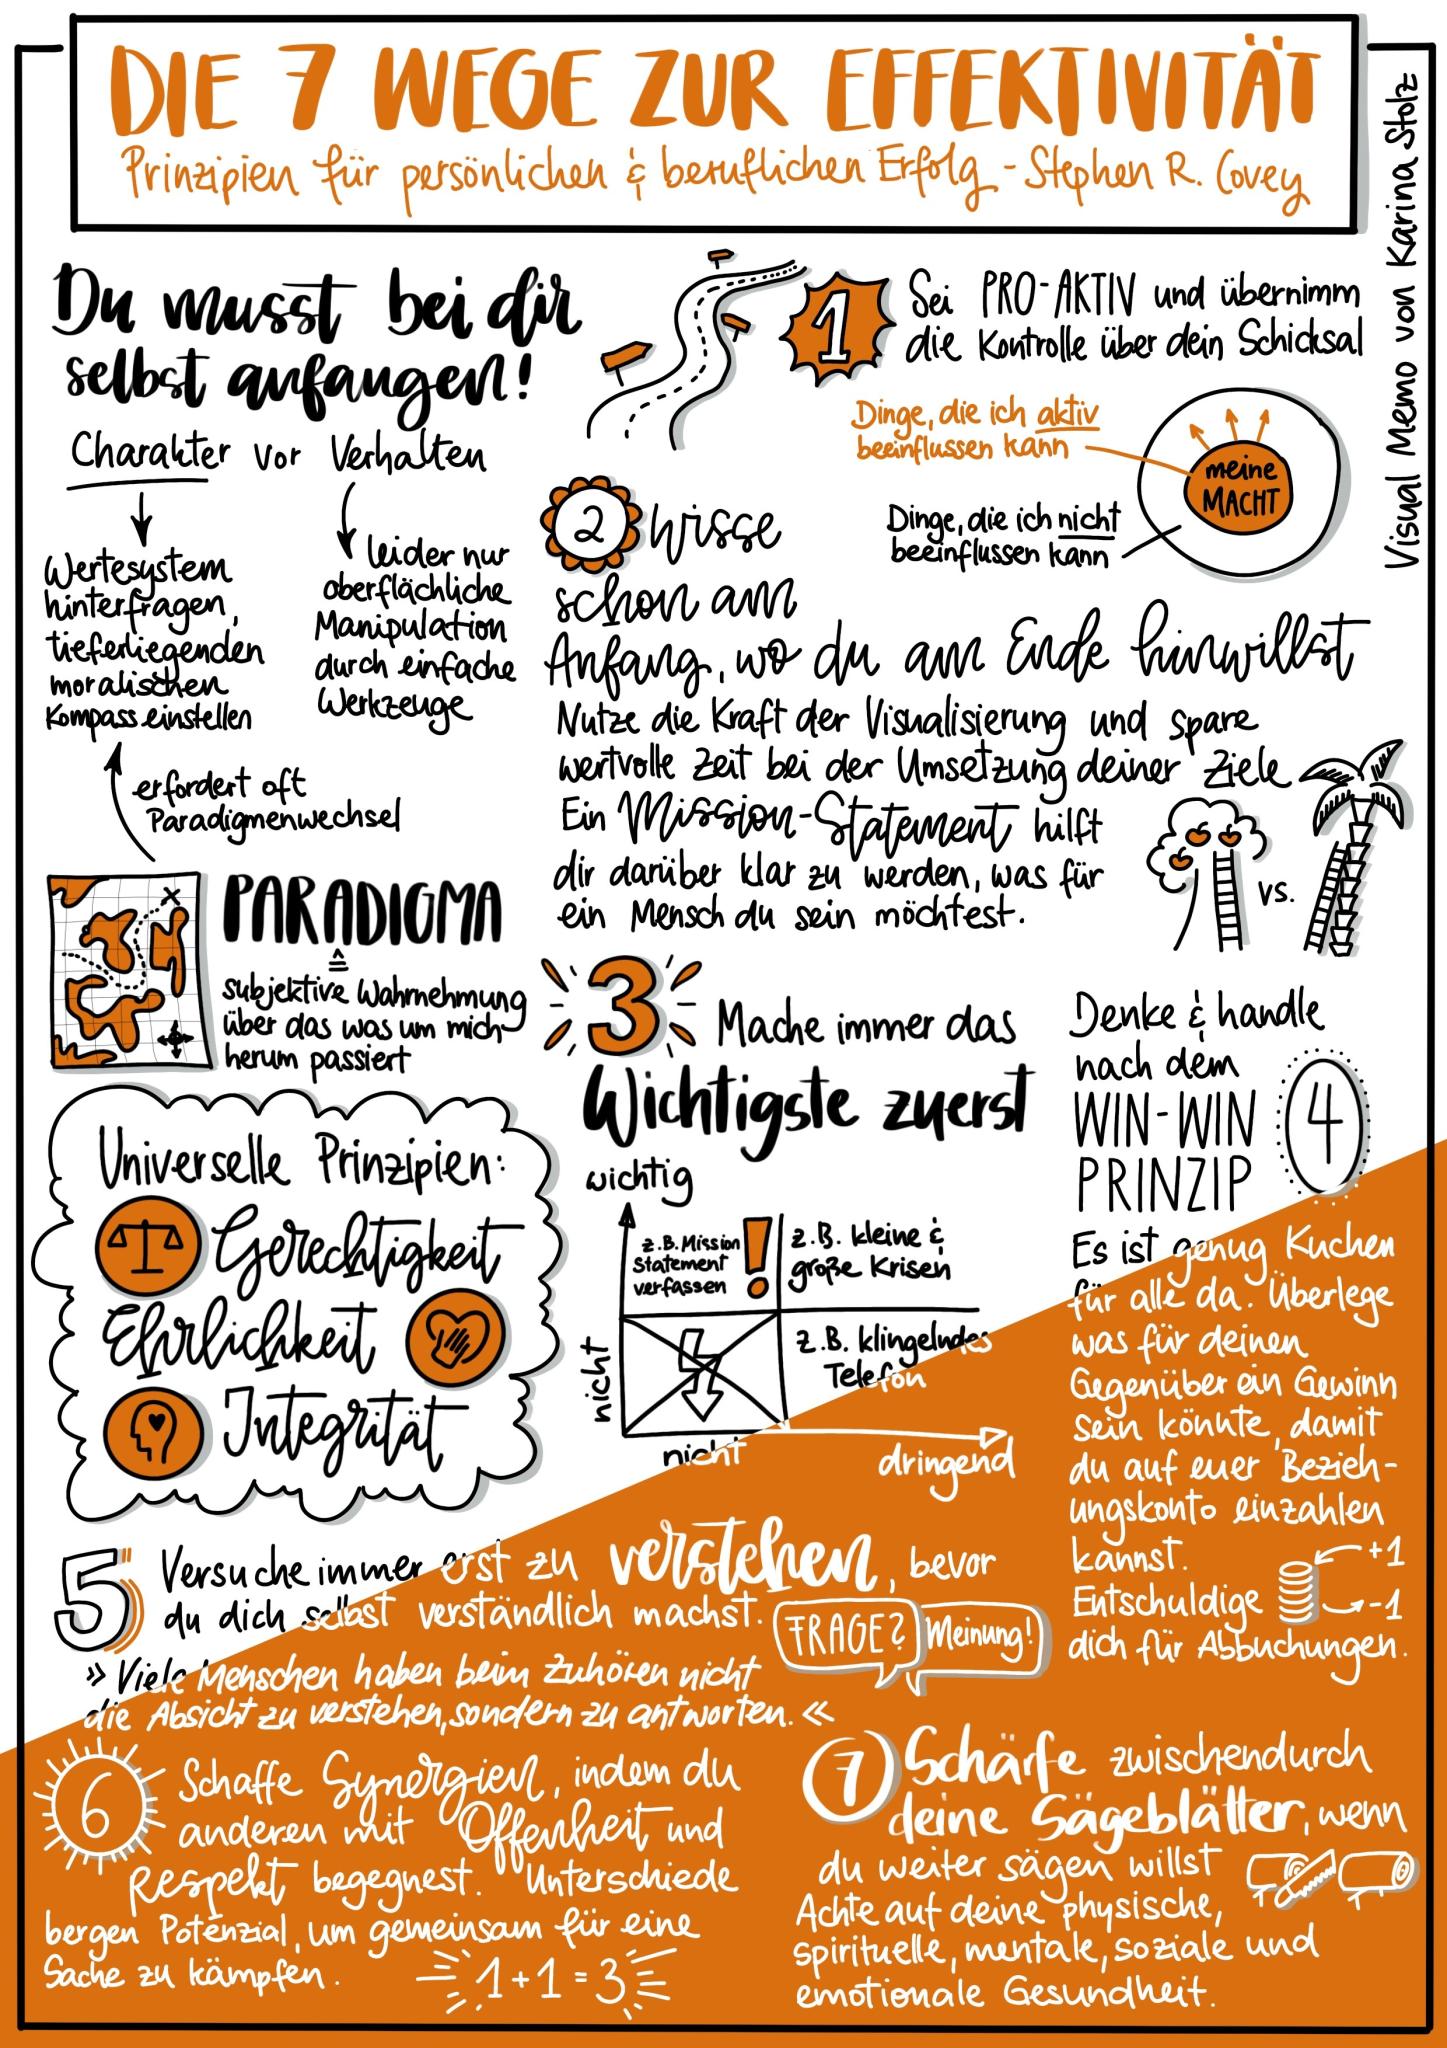 DIE 7 WEGE ZUR EFFEKTIVITÄT
Prinzipien für persönlichen & beruflichen Erfolg - Stephen R. Covey
Visual Memo von Karina Stolz
Du musst bei dir
selbst anfangen!
Charakter vor Verhalten
Wertesystem
hinterfragen,
tieferliegenden
moralischen
Kompass einstellen
leider nur
oberflächliche
Manipulation
durch einfache
Werkzeuge
erfordert oft
Paradigmenwechsel
PARADIGMA
≙
subjektive Wahrnehmung
über das was um mich
herum passiert
Universelle Prinzipien:
Gerechtigkeit
Ehrlichkeit
Integrität
1
Sei PRO-AKTIV und übernimm
die Kontrolle über dein Schicksal
Dinge, die ich aktiv
beeinflussen kann
meine
MACHT
Dinge, die ich nicht
beeinflussen kann
2 Wisse
schon am
Anfang, wo du am Ende hinwillst
Nutze die Kraft der Visualisierung und spare
wertvolle Zeit bei der Umsetzung deiner Ziele
Ein Mission-Statement hilft
dir darüber klar zu werden, was für
ein Mensch du sein möchtest.
vs.
3 Mache immer das
Wichtigste zuerst
wichtig
z.B. Mission
Statement
verfassen
!
z.B. kleine &
große Krisen
nicht
z.B. klingelndes
Telefon
nicht
dringend
Denke & handle
nach dem
WIN-WIN
PRINZIP
4
Es ist genug Kuchen
für alle da. Überlege
was für deinen
Gegenüber ein Gewinn
sein könnte, damit
du auf euer Bezieh-
ungskonto einzahlen
kannst.
+1
Entschuldige
-1
dich für Abbuchungen.
5 Versuche immer erst zu verstehen, bevor
du dich selbst verständlich machst.
FRAGE?
Meinung!
» Viele Menschen haben beim Zuhören nicht
die Absicht zu verstehen, sondern zu antworten. «
6 Schaffe Synergien, indem du
anderen mit Offenheit und
Respekt begegnest. Unterschiede
bergen Potenzial, um gemeinsam für eine
Sache zu kämpfen.
1+1=3
7 Schärfe zwischendurch
deine Sägeblätter, wenn
du weiter sägen willst
Achte auf deine physische,
spirituelle, mentale, soziale und
emotionale Gesundheit.